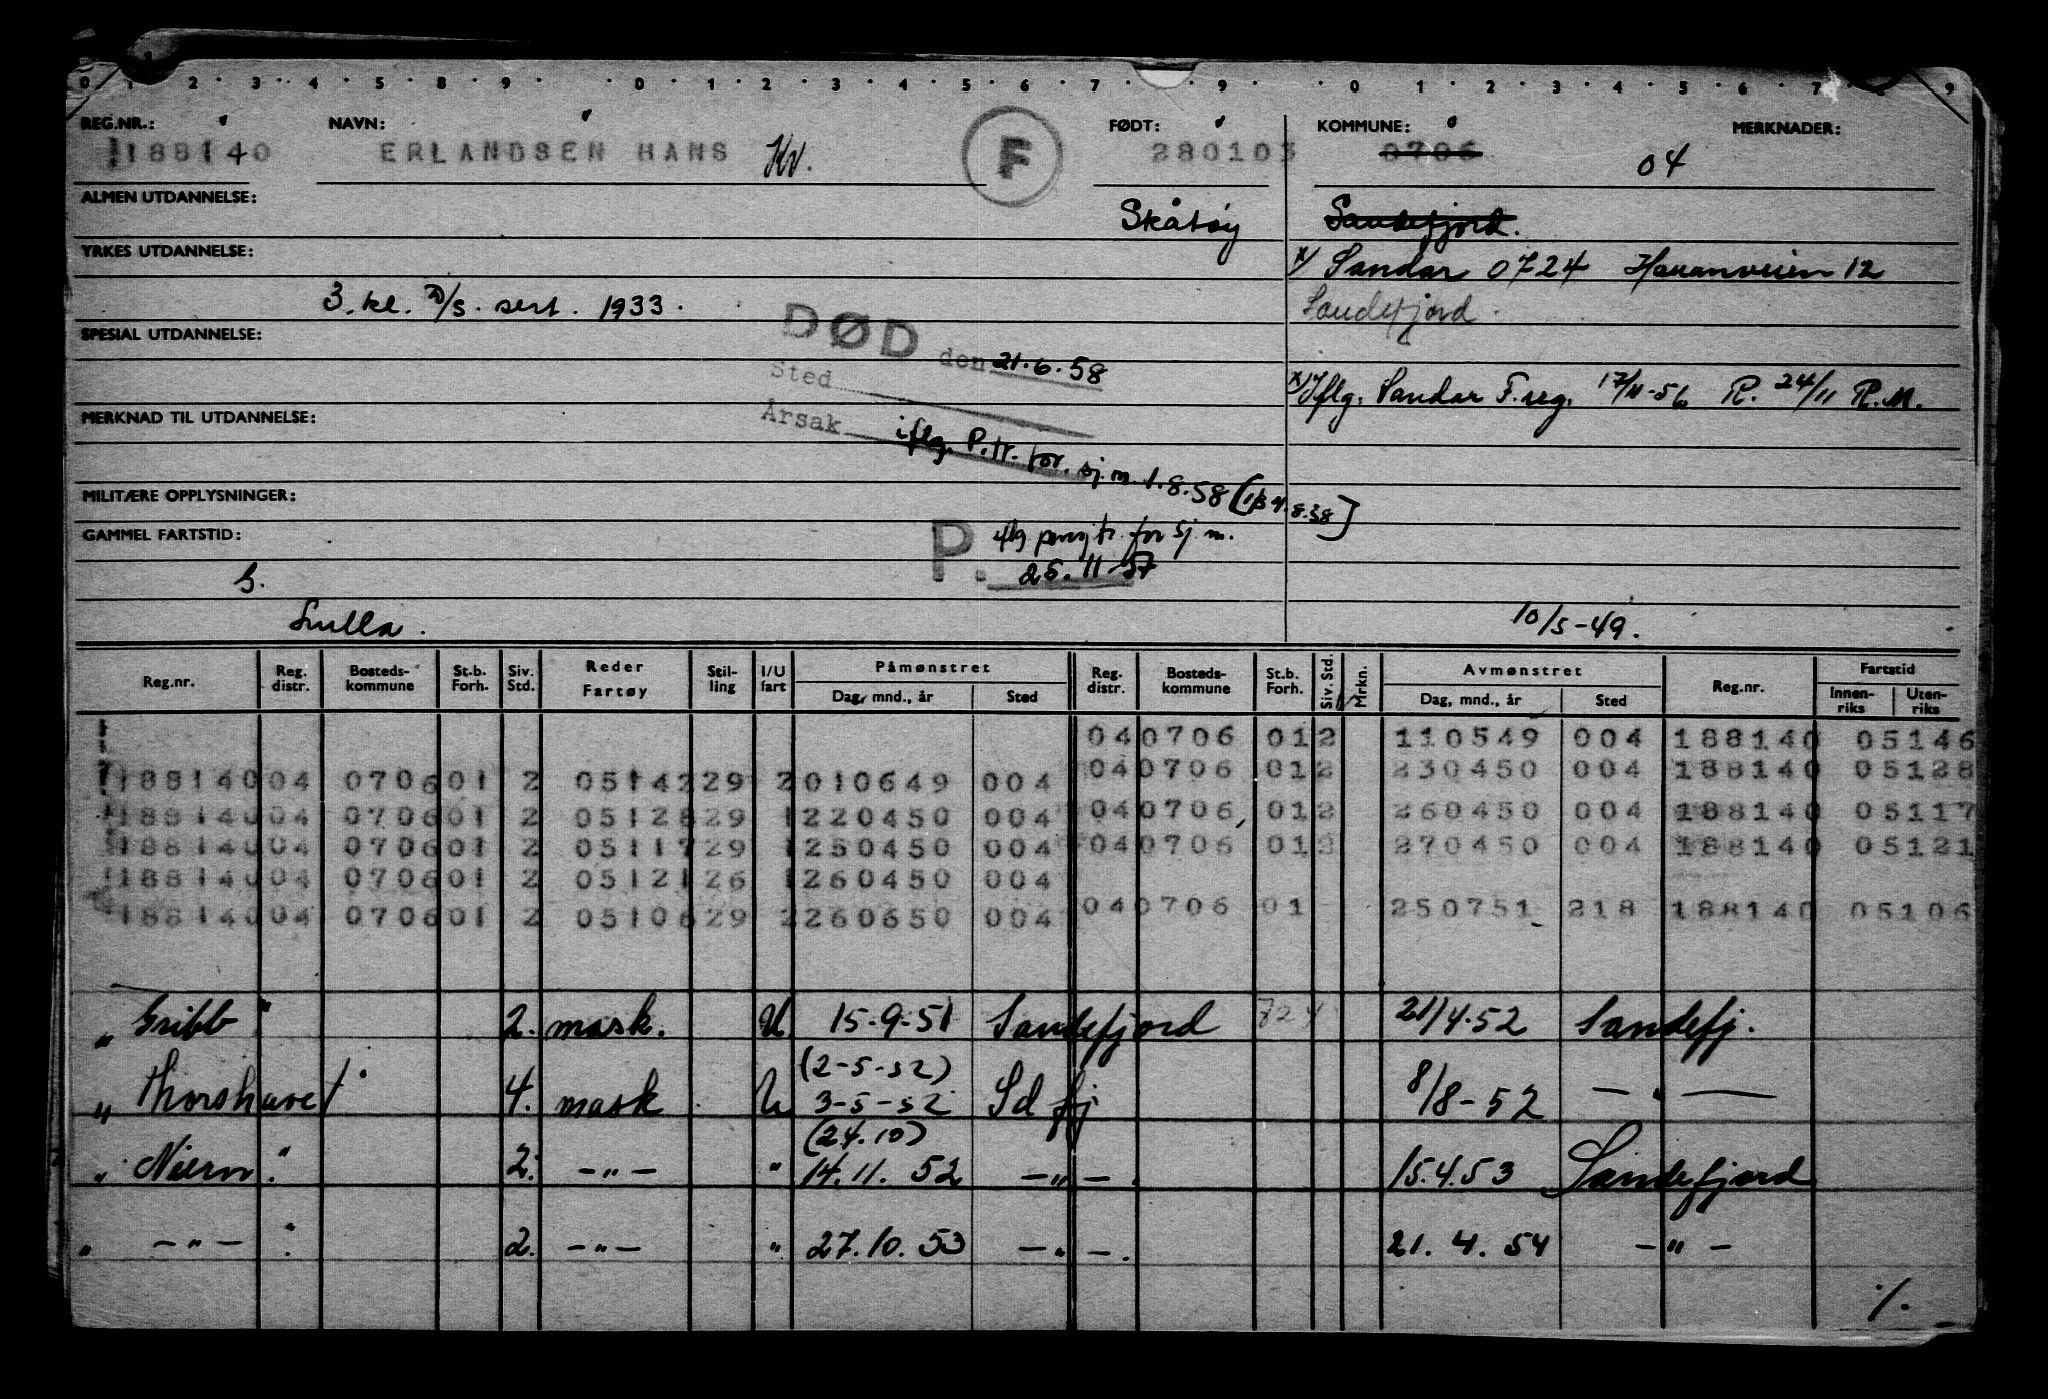 REG.NR.: NAVN: FØDT: KOMMUNE: MERKNADER:
188140 ERLANDSEN HANS Kv. F 280103 0706 04
ALMEN UTDANNELSE: Skåtøy Sandefjord.
YRKES UTDANNELSE: x) Sandar 0724 Havanveien 12
3. kl. D/S. sert. 1933. Sandefjord.
SPESIAL UTDANNELSE:
DØD den 21.6.58
Sted x) Iflg. Sandar F.reg. 17/11-56 R. 24/11 R.M.
MERKNAD TIL UTDANNELSE: Årsak
iflg. P.tr. for. sj.m. 1.8.58
MILITÆRE OPPLYSNINGER:
GAMMEL FARTSTID: P. iflg pensjtr. for sj.m.
S. 25.11-57
10/5-49.
Reg.nr. Reg. distr. Bosteds-kommune St.b. Forh. Siv. Std. Reder Fartøy Stil-ling I/U fart Påmønstret Dag, mnd., år Sted Reg. distr. Bosteds-kommune St.b. Forh. Siv. Std. Mrkn. Avmønstret Dag, mnd., år Sted Reg.nr. Fartstid Innen-riks Uten-riks
04 0706 01 2 110549 004 188140 05146
188140 04 0706 01 2 05142 29 2 010649 004 04 0706 01 2 230450 004 188140 05128
188140 04 0706 01 2 05128 29 1 220450 004 04 0706 01 2 260450 004 188140 05117
188140 04 0706 01 2 05117 29 1 250450 004 04 0706 01 2 270450 004 188140 05121
188140 04 0706 01 2 05121 26 1 260450 004
188140 04 0706 01 2 05106 29 2 260650 004 04 0706 01 250751 218 188140 05106
" Gribb " 2. mask. U 15-9-51 Sandefjord 724 21/4.52 Sandefj.
(2-5-52)
" Thorshavet " 4. mask U 3-5-52 Sdfj 8/8-52 — " —
(24.10)
" Niern " 2. — " — " 14.11.52 — " — . 15.4.53 Sandefjord
" — " — " 2. — " — " 27.10.53 — " — . 21.4.54 — " —
./.